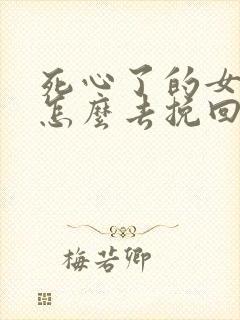 死心了的女
怎麼去挽回
梅若卿